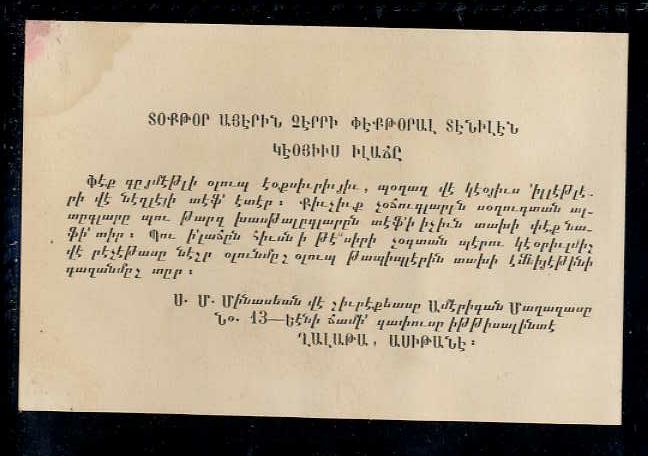 ՏՕՔԹՕՐ ԱՅԷՐԻՆ ՉԷՐՐԻ ՓԷՔԹՕՐԱԼ ՏԷՆԻԼԷՆ
ԿԷՕՅԻՒՍ ԻԼԱՃԸ
ֆէք գըյմէթլի օլուպ էօքսիւրիւյիւ, պօղազ վէ կէօյիւս ՚իլլէթլէ-
րի վէ նէզլէյի տէֆ՚ էտէր։ Քիւչիւք չօճուգլարըն սօղուգտան ալ-
տըգլարը պու թարզ խասթալըգլարըն տէֆ՚ի իչիւն տախի փէք նա-
ֆի՚ տիր։ Պու ի՚լաճըն հիւսն ի թէ՚սիրի չօգտան պէրու կէօրիւլմիշ
վէ րէչէթասը նէշր օլունմըշ օլուպ թապիպլէրին տախի էմնիյէթինի
գազանմըշ տըր։
Ս. Մ. Մինասեան վէ շիւրէքեասը Ամէրիգան Մաղազասը
Նօ. 13—Եէնի ճամի՚ գափուսը իթթիսալինտէ
ՂԱԼԱԹԱ, ԱՍԻԹԱՆԷ։